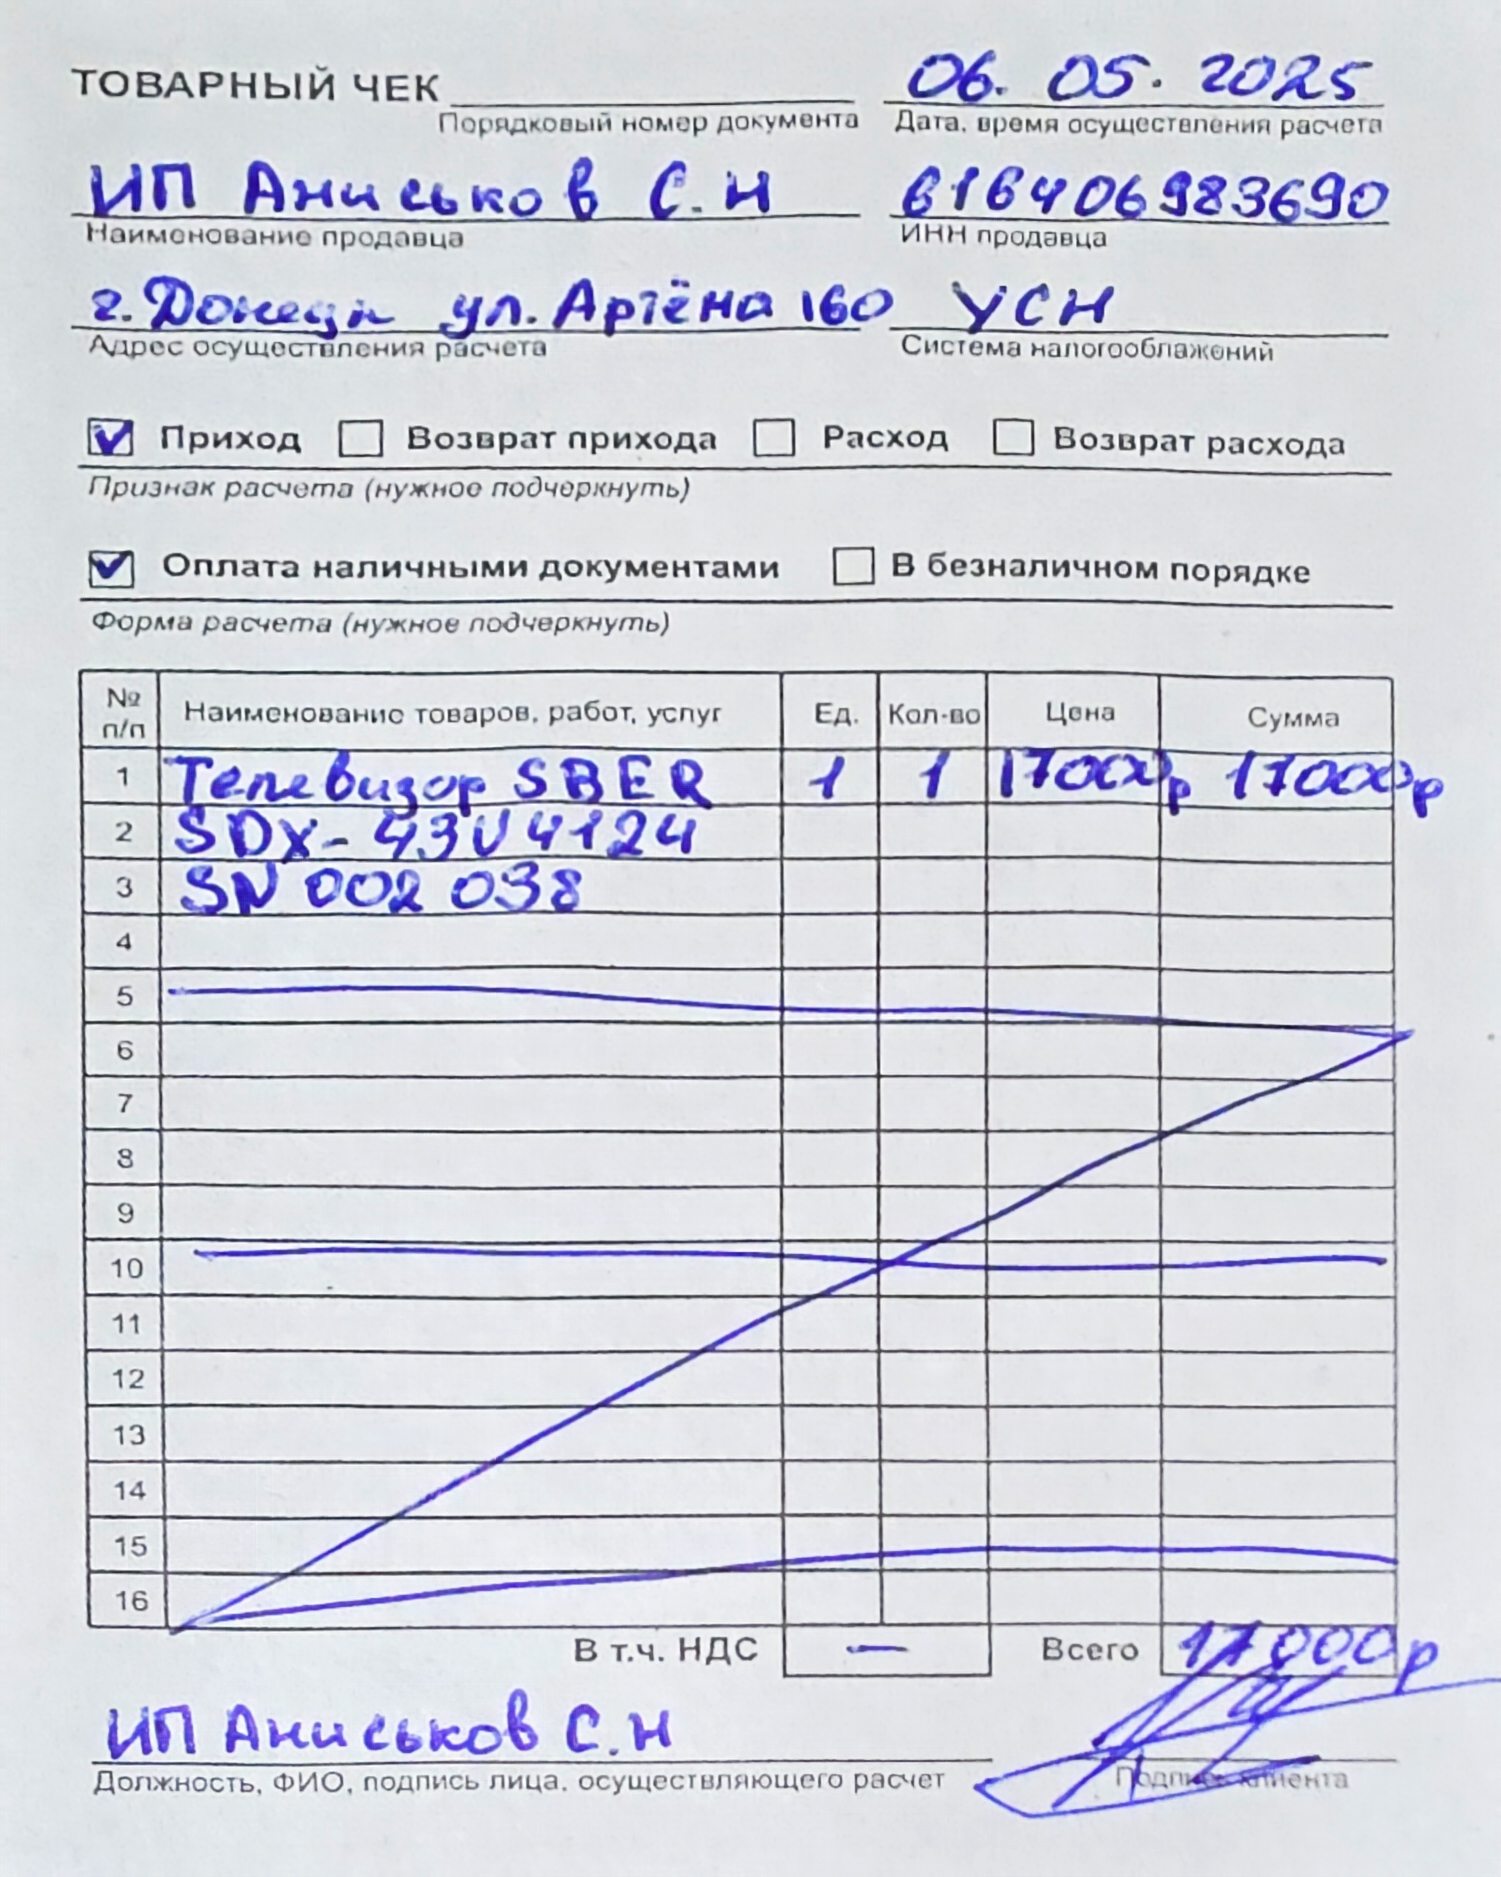 ТОВАРНЫЙ ЧЕК 06. 05. 2025
Порядковый номер документа Дата, время осуществления расчета
ИП Аниськов С. Н 616406983690
Наименование продавца ИНН продавца
г. Донецк ул. Артёма 160 УСН
Адрес осуществления расчета Система налогооблажений
Приход Возврат прихода Расход Возврат расхода
Признак расчета (нужное подчеркнуть)
Оплата наличными документами В безналичном порядке
Форма расчета (нужное подчеркнуть)
№ п/п Наименование товаров, работ, услуг Ед. Кол-во Цена Сумма
1 Телевизор SBER 1 1 17000р 17000р
2 SDX-43U4124
3 SN 002 038
4
5
6
7
8
9
10
11
12
13
14
15
16
В т.ч. НДС — Всего 17000р
ИП Аниськов С. Н
Должность, ФИО, подпись лица, осуществляющего расчет Подпись клиента